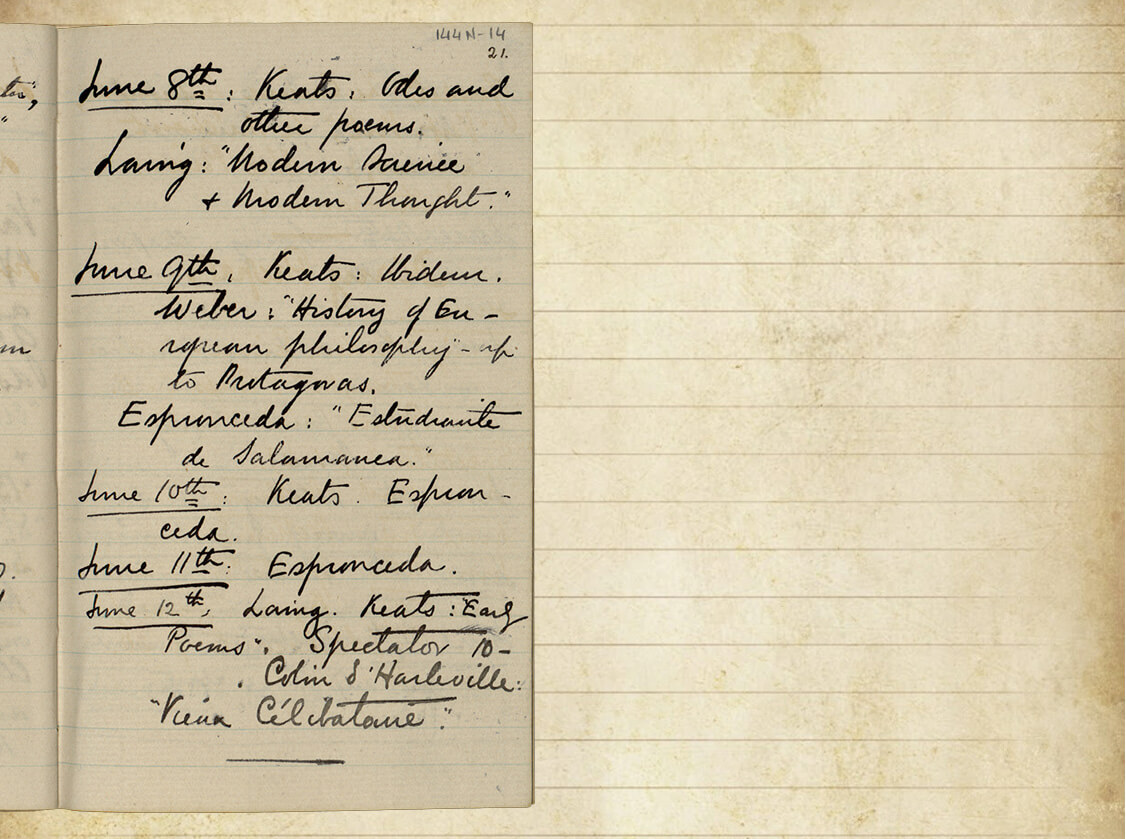 144N-14
21.
June 8th: Keats: Odes and
other poems.
Laing: "Modern Science
+ Modern Thought."
June 9th: Keats: Ibidem.
Weber: "History of Eu-
ropean philosophy - up
to Protagoras.
Espronceda: "Estudiante
de Salamanca."
June 10th: Keats. Espron-
ceda.
June 11th: Espronceda.
June 12th, Laing. Keats: "Early
Poems". Spectator 10-
Colin d'Harleville:
"Vieux Célibataire".